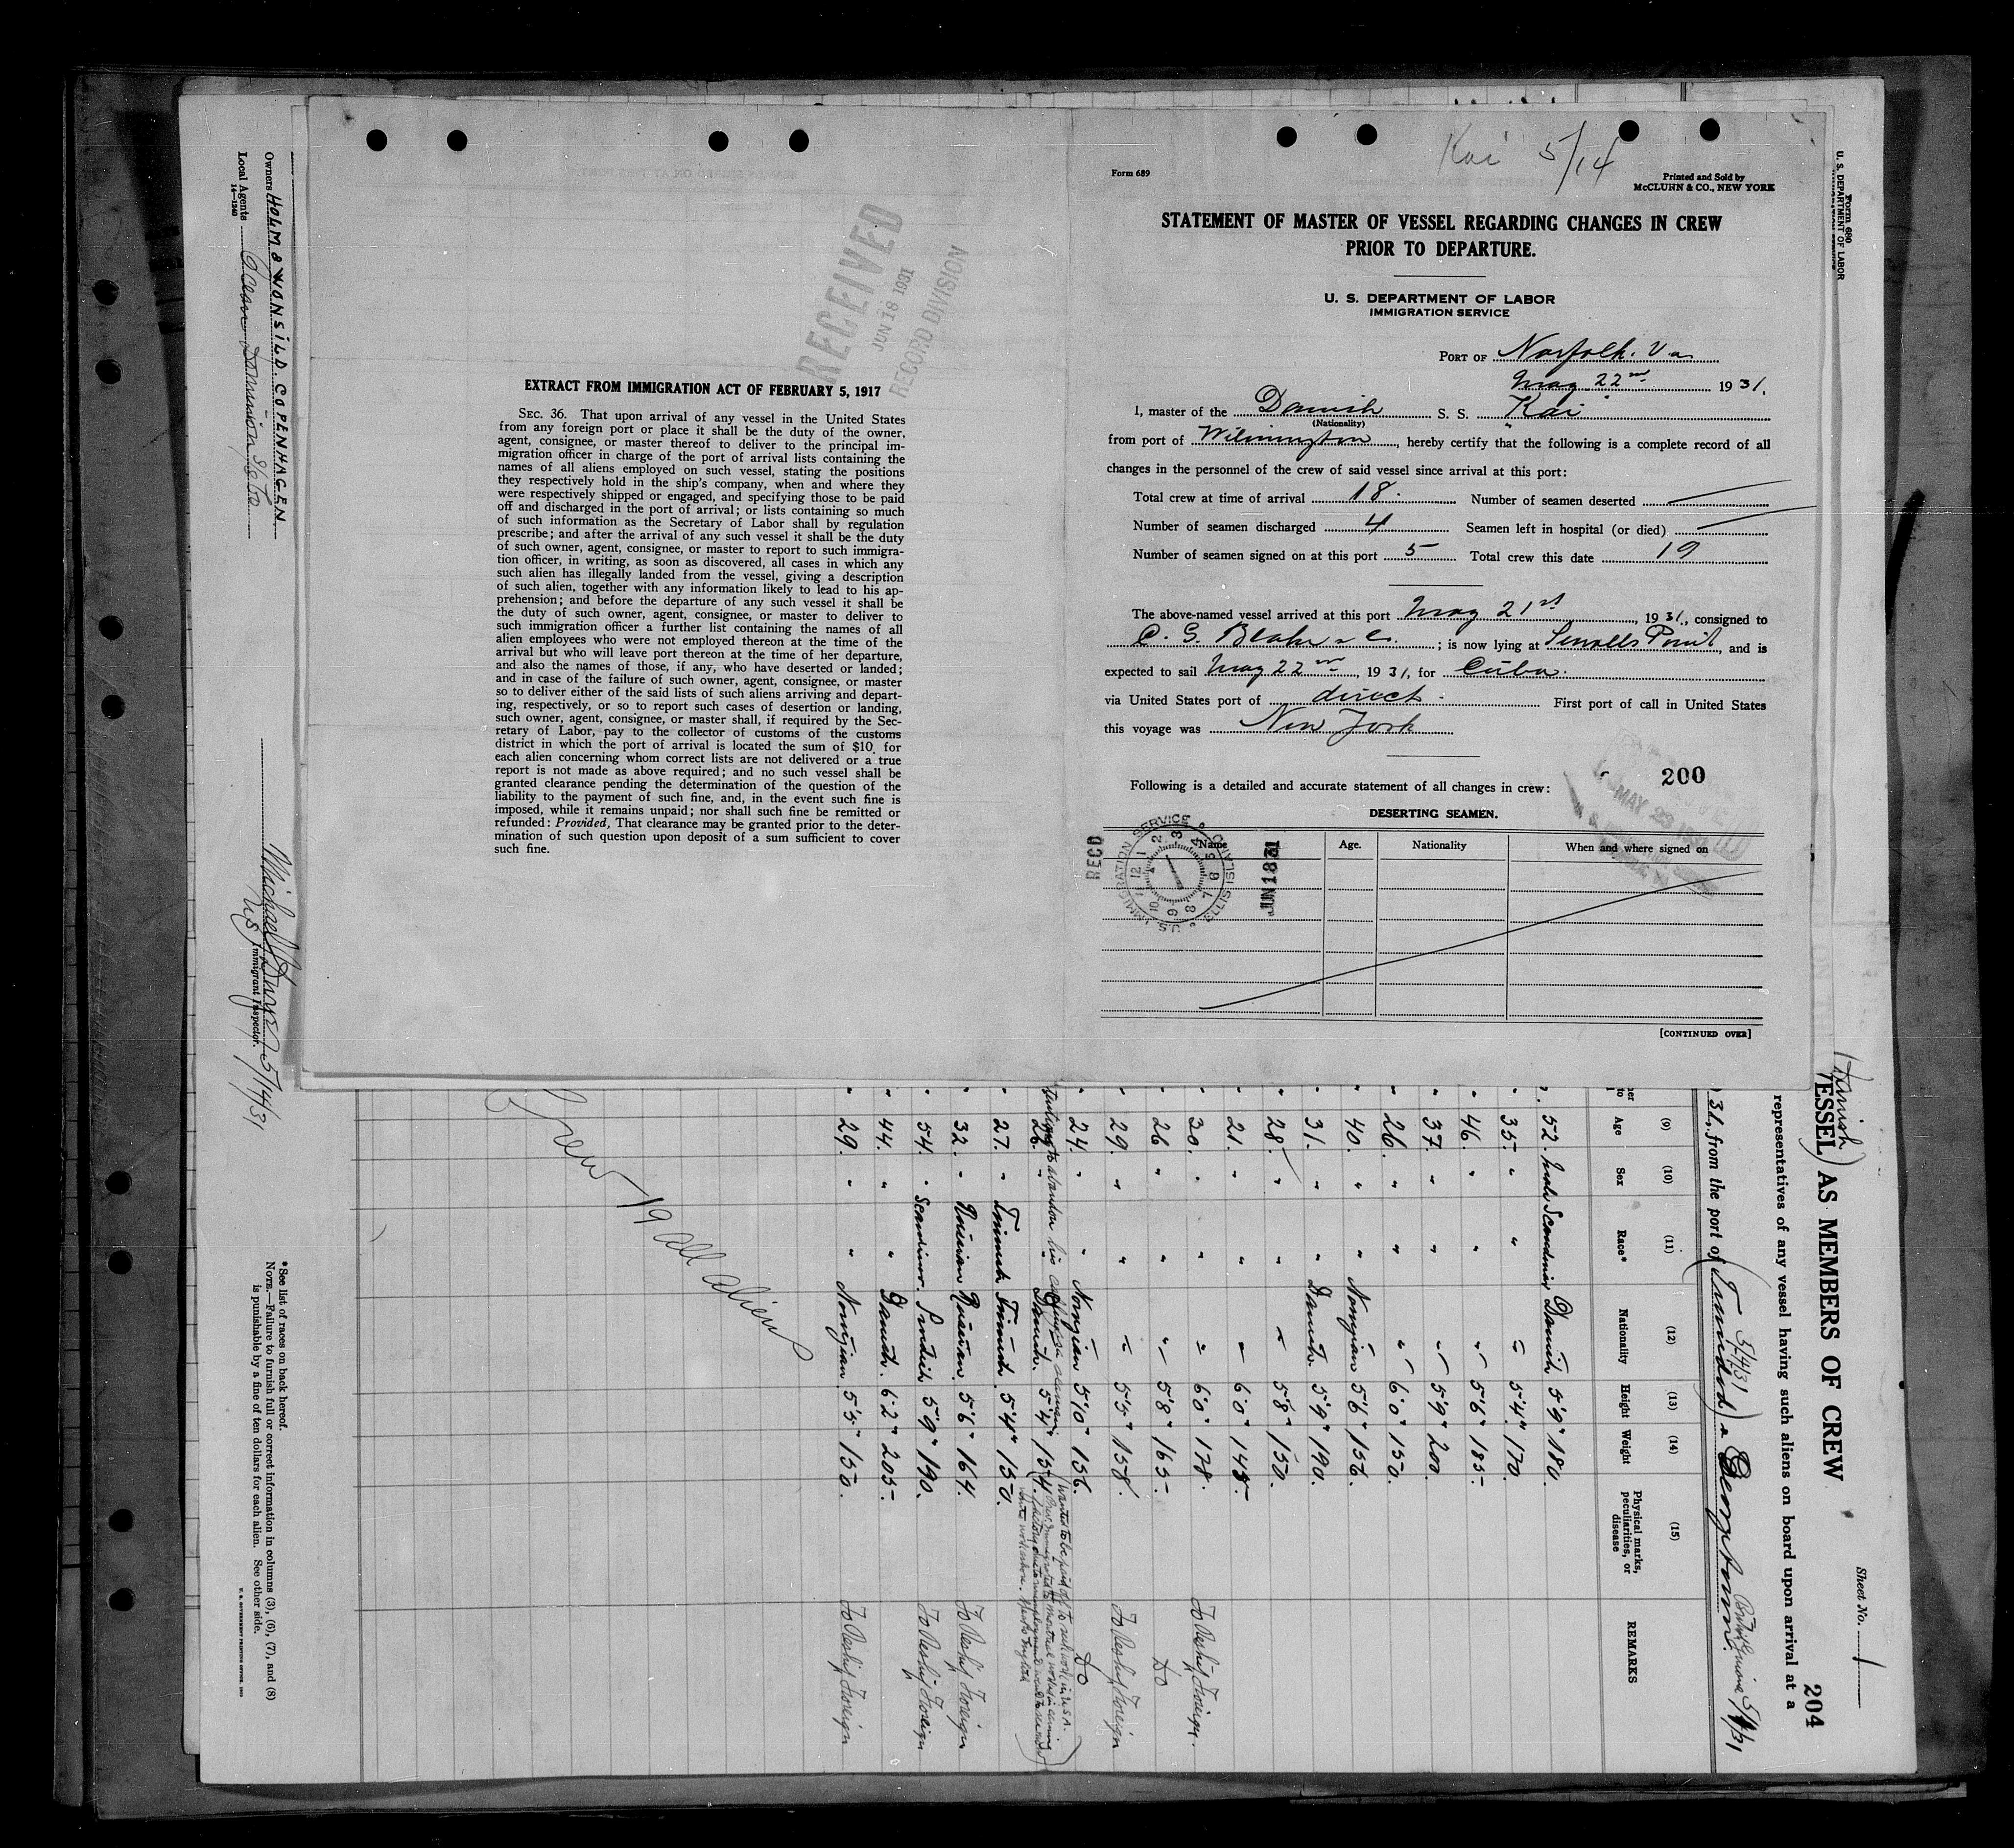 Kai 5/14
Form 689
Printed and Sold by
McCLUHN & CO., NEW YORK
STATEMENT OF MASTER OF VESSEL REGARDING CHANGES IN CREW
PRIOR TO DEPARTURE.
U. S. DEPARTMENT OF LABOR
IMMIGRATION SERVICE
PORT OF Norfolk. Va
May 22nd 1931.
I, master of the Danish S. S. Kai
(Nationality)
from port of Wilmington, hereby certify that the following is a complete record of all
changes in the personnel of the crew of said vessel since arrival at this port:
Total crew at time of arrival 18. Number of seamen deserted
Number of seamen discharged 4 Seamen left in hospital (or died)
Number of seamen signed on at this port 5 Total crew this date 19
The above-named vessel arrived at this port May 21st, 1931, consigned to
C. G. Blake & Co. ; is now lying at Sewells Point, and is
expected to sail May 22nd, 1931, for Cuba.
via United States port of direct. First port of call in United States
this voyage was New York
200
Following is a detailed and accurate statement of all changes in crew:
DESERTING SEAMEN.
Name Age. Nationality When and where signed on
RECD
U.S. IMMIGRATION SERVICE
ELLIS ISLAND
JUN 18 31
MAY 23
[CONTINUED OVER]
RECEIVED
JUN 18 1931
RECORD DIVISION
EXTRACT FROM IMMIGRATION ACT OF FEBRUARY 5, 1917
SEC. 36. That upon arrival of any vessel in the United States
from any foreign port or place it shall be the duty of the owner,
agent, consignee, or master thereof to deliver to the principal im-
migration officer in charge of the port of arrival lists containing the
names of all aliens employed on such vessel, stating the positions
they respectively hold in the ship's company, when and where they
were respectively shipped or engaged, and specifying those to be paid
off and discharged in the port of arrival; or lists containing so much
of such information as the Secretary of Labor shall by regulation
prescribe; and after the arrival of any such vessel it shall be the duty
of such owner, agent, consignee, or master to report to such immigra-
tion officer, in writing, as soon as discovered, all cases in which any
such alien has illegally landed from the vessel, giving a description
of such alien, together with any information likely to lead to his ap-
prehension; and before the departure of any such vessel it shall be
the duty of such owner, agent, consignee, or master to deliver to
such immigration officer a further list containing the names of all
alien employees who were not employed thereon at the time of the
arrival but who will leave port thereon at the time of her departure,
and also the names of those, if any, who have deserted or landed;
and in case of the failure of such owner, agent, consignee, or master
so to deliver either of the said lists of such aliens arriving and depart-
ing, respectively, or so to report such cases of desertion or landing,
such owner, agent, consignee, or master shall, if required by the Sec-
retary of Labor, pay to the collector of customs of the customs
district in which the port of arrival is located the sum of $10 for
each alien concerning whom correct lists are not delivered or a true
report is not made as above required; and no such vessel shall be
granted clearance pending the determination of the question of the
liability to the payment of such fine, and, in the event such fine is
imposed, while it remains unpaid; nor shall such fine be remitted or
refunded: Provided, That clearance may be granted prior to the deter-
mination of such question upon deposit of a sum sufficient to cover
such fine.
Form 680
U. S. DEPARTMENT OF LABOR
Sheet No. 1
204
Danish
VESSEL) AS MEMBERS OF CREW
representatives of any vessel having such aliens on board upon arrival at a
31, from the port of (Trinidad) & Georgetown.
(9) (10) (11) (12) (13) (14) (15)
Age Sex Race* Nationality Height Weight Physical marks, peculiarities, or disease REMARKS
52. male Scandinav Danish 5'9" 180.
35. " " = 5'4" 170.
46. " " " 5'6" 185.
37. " " " 5'9" 200.
26. " " " 6'0" 150.
40. " " Norwgian 5'6" 156.
31. " " Danish. 5'9" 190.
28. " " = 5'8" 150.
21. " " = 6'0" 145.
30. " " = 6'0" 178. To Reship Foreign.
26 " " " 5'8" 165. DO
29. " " = 5'5" 158. To Reship Foreign
24. " " Norwgian 5'10" 156. DO
26. " " Danish. 5'4" 154.
27. " Finnish Finnish 5'4" 150.
32. " Russian Russian. 5'6" 164. To Reship Foreign
54. " Scandinav. Swedish 5'9" 190. To Reship Foreign
44. " " Danish. 6'2" 205.
29. " " Norwgian 5'5" 150. To Reship Foreign
Crew 19 all aliens
Owners HOLM & WONSILD. COPENHAGEN
Local Agents Ocean Dominion SS Co
14—1240
5/14/31
US Immigrant Inspector.
*See list of races on back hereof.
NOTE.—Failure to furnish full or correct information in columns (3), (6), (7), and (8)
is punishable by a fine of ten dollars for each alien. See other side.